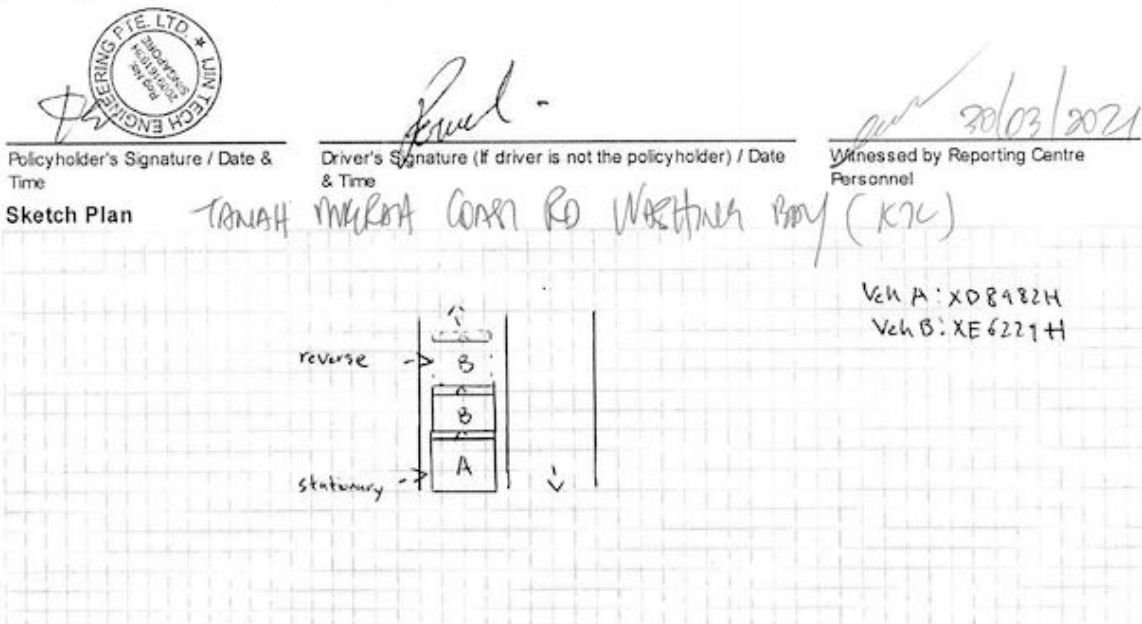 IJIN TECH ENGINEERING PTE. LTD. *
Reg No:
SINGAPORE
30/03/2021
Policyholder's Signature / Date &
Time
Driver's Signature (If driver is not the policyholder) / Date
& Time
Witnessed by Reporting Centre
Personnel
Sketch Plan TANAH MERAH COAST RD WASHING BAY (KTC)
Veh A: XD8982H
Veh B: XE6229H
reverse B
B
stationary A